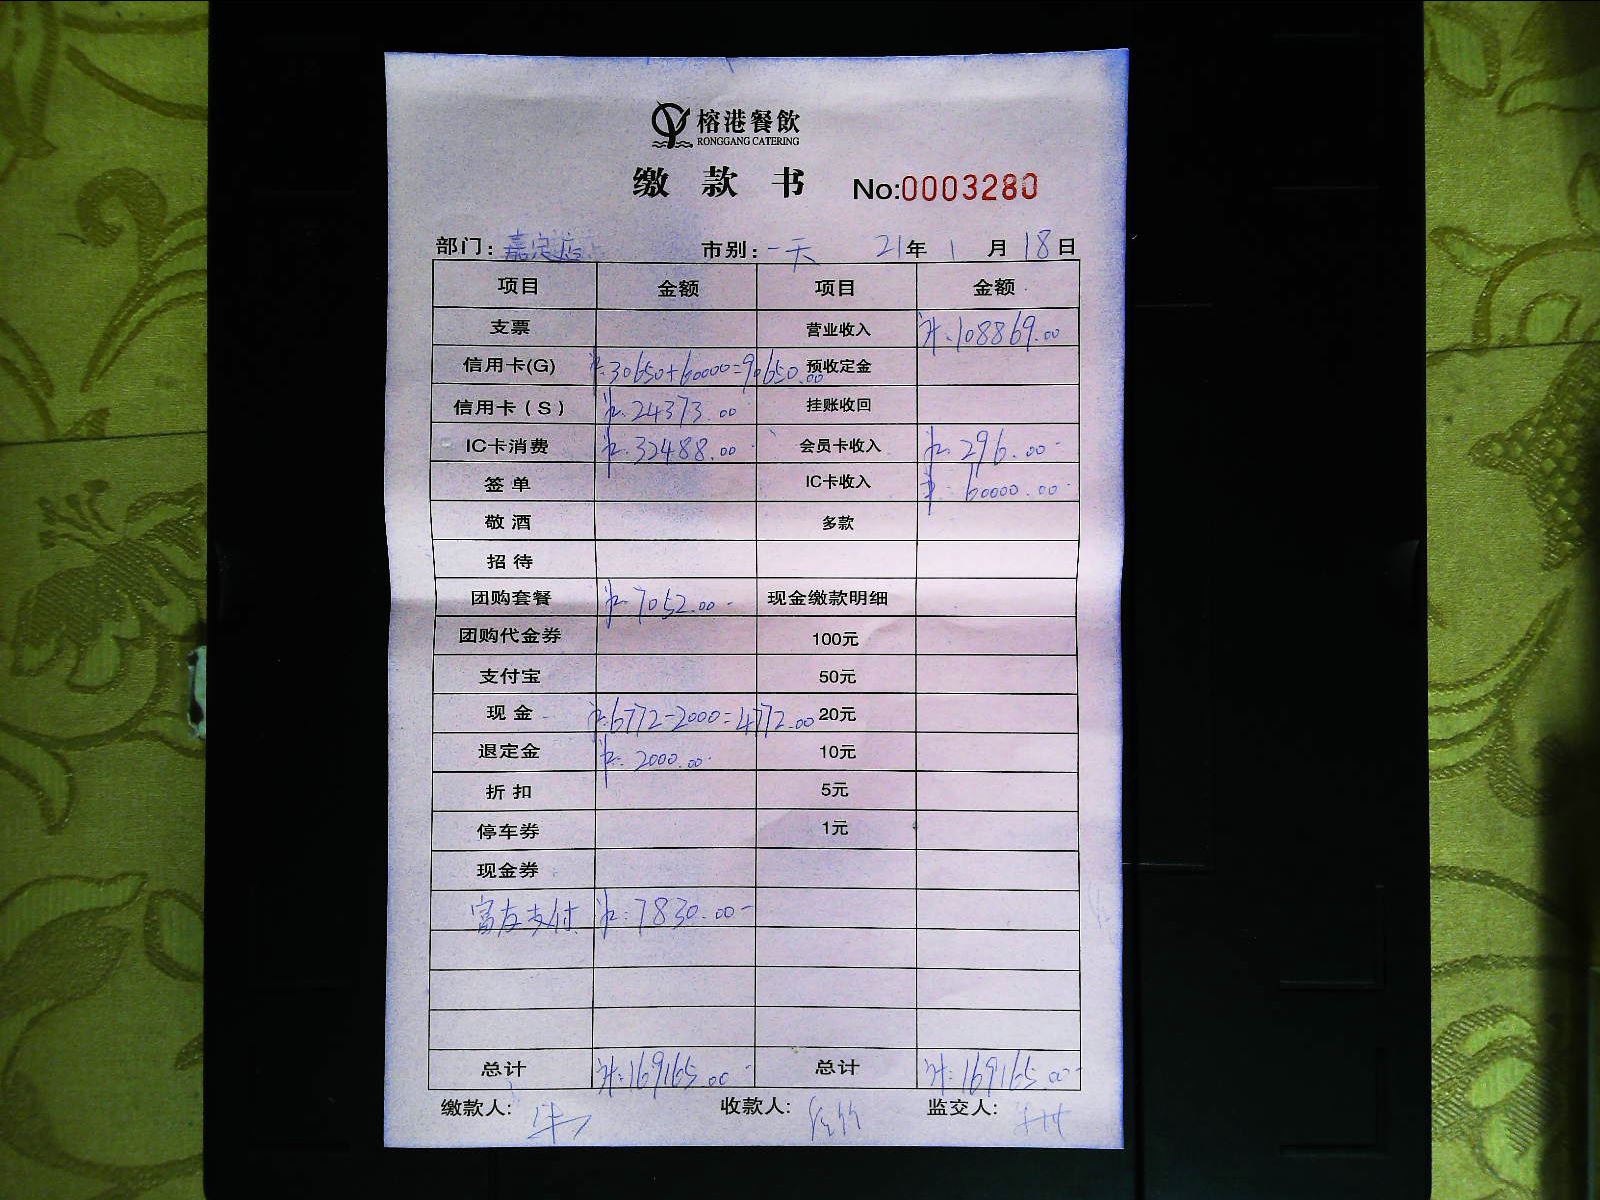 榕港餐飲
RONGGANG CATERING
缴款书 No:0003280
部门: 嘉定店 市别: 一天 21年 1月 18日
项目 金额 项目 金额
支票 营业收入 108869.00
信用卡(G) 30650+60000=90650.00 预收定金
信用卡(S) 24373.00 挂账收回
IC卡消费 32488.00 会员卡收入 296.00
签单 IC卡收入 60000.00
敬酒 多款
招待
团购套餐 7052.00 现金缴款明细
团购代金券 100元
支付宝 50元
现金 6772-2000=4772.00 20元
退定金 2000.00 10元
折扣 5元
停车券 1元
现金券
富友支付 7830.00
总计 169165.00 总计 169165.00
缴款人: 收款人: 监交人: